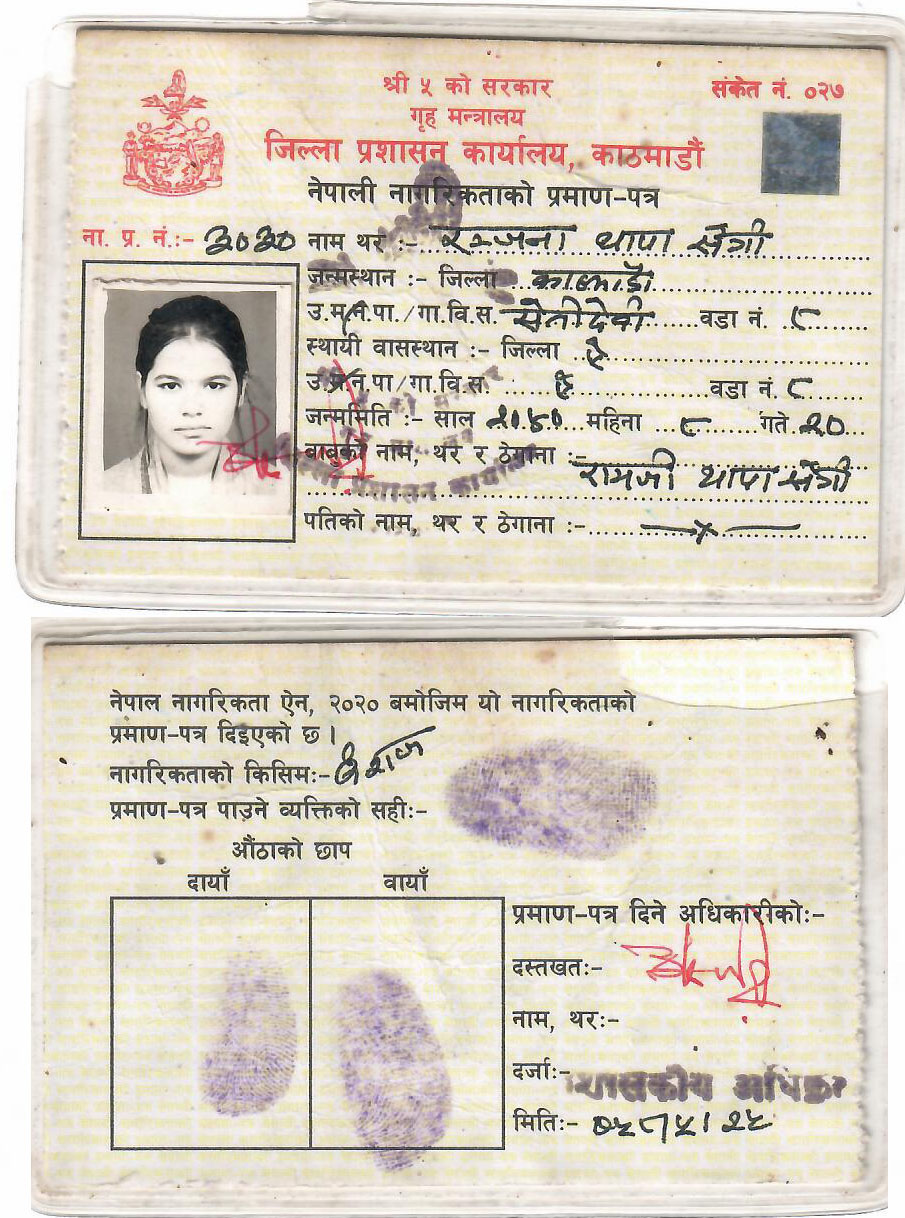 श्री ५ को सरकार
गृह मन्त्रालय
जिल्ला प्रशासन कार्यालय, काठमाडौं
संकेत नं. ०२७
नेपाली नागरिकताको प्रमाण-पत्र
ना. प्र. नं.:- ३०३०
नाम थर :- रन्जना थापा क्षेत्री
जन्मस्थान :- जिल्ला काठमाडौं
उ.म.न.पा./गा.वि.स. सेतीदेवी वडा नं. ८
स्थायी वासस्थान :- जिल्ला ऐ
उ.म.न.पा/गा.वि.स. ऐ वडा नं. ८
जन्ममिति :- साल २०४० महिना ८ गते २०
बाबुको नाम, थर र ठेगाना :- रामजी थापा क्षेत्री
पतिको नाम, थर र ठेगाना :- x
नेपाल नागरिकता ऐन, २०२० बमोजिम यो नागरिकताको
प्रमाण-पत्र दिइएको छ ।
नागरिकताको किसिम:- वंशज
प्रमाण-पत्र पाउने व्यक्तिको सही:-
औंठाको छाप
दायाँ वायाँ
प्रमाण-पत्र दिने अधिकारीको:-
दस्तखत:-
नाम, थर:-
दर्जा:-
मिति:-